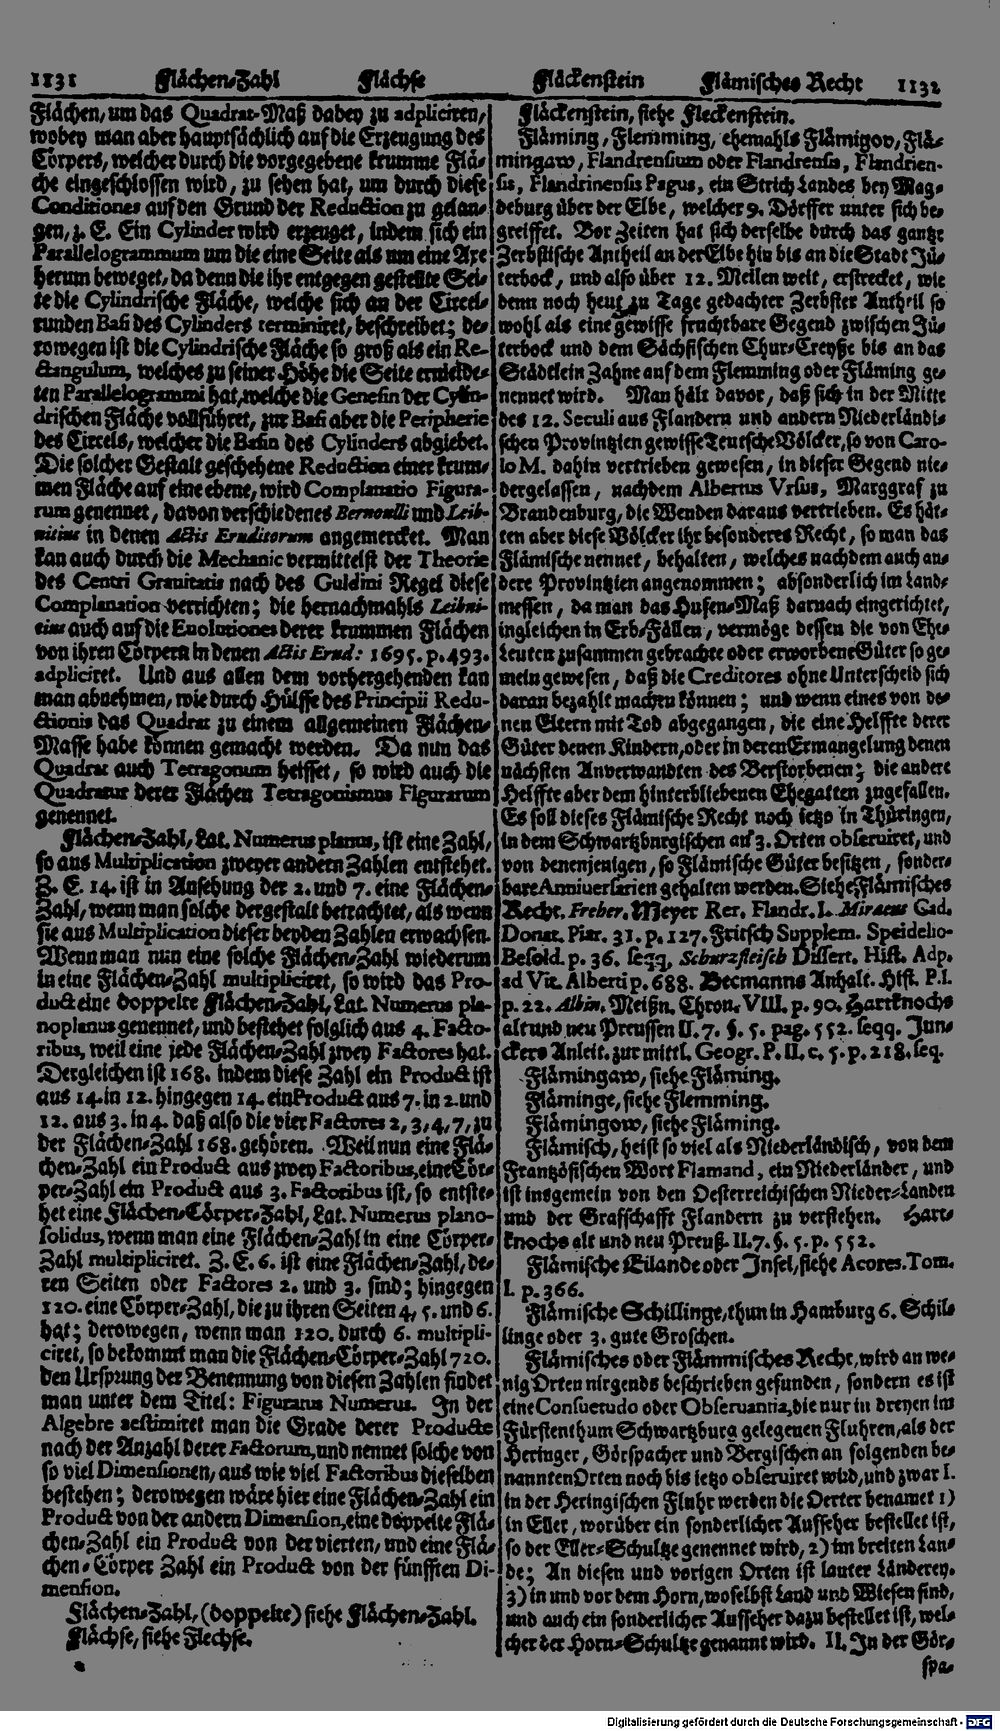 1131 Flächen-Zahl Flächse Fläckenstein Flämisches Recht 1132
Flächen, um das Quadrat-Maß dabey zu adpliciren,
wobey man aber hauptsächlich auf die Erzeugung des
Cörpers, welcher durch die vorgegebene krumme Flä-
che eingeschlossen wird, zu sehen hat, um durch diese
Conditiones auf den Grund der Reduction zu gelan-
gen, z. E. Ein Cylinder wird erzeuget, indem sich ein
Parallelogrammum um die eine Seite als um eine Axe
herum beweget, da denn die ihr entgegen gestellte Sei-
te die Cylindrische Fläche, welche sich an der Circel-
runden Basi des Cylinders terminiret, beschreibet; de-
rowegen ist die Cylindrische Fläche so groß als ein Re-
ctangulum, welches zu seiner Höhe die Seite ermelde-
ten Parallelogrammi hat, welche die Genesin der Cylin-
drischen Fläche vollführet, zur Basi aber die Peripherie
des Circels, welcher die Basin des Cylinders abgiebet.
Die solcher Gestalt geschehene Reduction einer krum-
men Fläche auf eine ebene, wird Complanatio Figura-
rum genennet, davon verschiedenes Bernoulli und Leib-
nitius in denen Actis Eruditorum angemercket. Man
kan auch durch die Mechanic vermittelst der Theorie
des Centri Grauitatis nach des Guldini Regel diese
Complanation verrichten; die hernachmahls Leibni-
tius auch auf die Euolutiones derer krummen Flächen
von ihren Cörpern in denen Actis Erud: 1695. p. 493.
adpliciret. Und aus allen dem vorhergehenden kan
man abnehmen, wie durch Hülffe des Principii Redu-
ctionis das Quadrat zu einem allgemeinen Flächen-
Masse habe können gemacht werden. Da nun das
Quadrat auch Tetragonum heisset, so wird auch die
Quadratur derer Flächen Tetragonismus Figurarum
genennet.
Flächen-Zahl, Lat. Numerus planus, ist eine Zahl,
so aus Multiplication zweyer andern Zahlen entstehet.
Z. E. 14. ist in Ansehung der 2. und 7. eine Flächen-
Zahl, wenn man solche dergestalt betrachtet, als wenn
sie aus Multiplication dieser beyden Zahlen erwachsen.
Wenn man nun eine solche Flächen-Zahl wiederum
in eine Flächen-Zahl multipliciret, so wird das Pro-
duct eine doppelte Flächen-Zahl, Lat. Numerus pla-
noplanus genennet, und bestehet folglich aus 4. Facto-
ribus, weil eine jede Flächen-Zahl zwey Factores hat.
Dergleichen ist 168. indem diese Zahl ein Product ist
aus 14. in 12. hingegen 14. ein Product aus 7. in 2. und
12. aus 3. in 4. daß also die vier Factores 2, 3, 4, 7, zu
der Flächen-Zahl 168. gehören. Weil nun eine Flä-
chen-Zahl ein Product aus zwey Factoribus, eine Cör-
per-Zahl ein Product aus 3. Factoribus ist, so entste-
het eine Flächen-Cörper-Zahl, Lat. Numerus plano-
solidus, wenn man eine Flächen-Zahl in eine Cörper-
Zahl multipliciret. Z. E. 6. ist eine Flächen-Zahl, de-
ren Seiten oder Factores 2. und 3. sind; hingegen
120. eine Cörper-Zahl, die zu ihren Seiten 4, 5. und 6.
hat; derowegen, wenn man 120. durch 6. multipli-
ciret, so bekommt man die Flächen-Cörper-Zahl 720.
Den Ursprung der Benennung von diesen Zahlen findet
man unter dem Titel: Figuratus Numerus. In der
Algebre aestimiret man die Grade derer Producte
nach der Anzahl derer Factorum, und nennet solche von
so viel Dimensionen, aus wie viel Factoribus dieselben
bestehen; derowegen wäre hier eine Flächen-Zahl ein
Product von der andern Dimension, eine doppelte Flä-
chen-Zahl ein Product von der vierten, und eine Flä-
chen-Cörper Zahl ein Product von der fünfften Di-
mension.
Flächen-Zahl, (doppelte) siehe Flächen-Zahl.
Flächse, siehe Flechse.
Fläckenstein, siehe Fleckenstein.
Fläming, Flemming, ehemahls Flämigov, Flä-
mingaw, Flandrensium oder Flandrensis, Flandrien-
sis, Flandrinensis Pagus, ein Strich Landes bey Mag-
deburg über der Elbe, welcher 9. Dörffer unter sich be-
greiffet. Vor Zeiten hat sich derselbe durch das gantze
Zerbstische Antheil an der Elbe hin bis an die Stadt Jü-
terbock, und also über 12. Meilen weit, erstrecket, wie
denn noch heut zu Tage gedachter Zerbster Antheil so
wohl als eine gewisse fruchtbare Gegend zwischen Jü-
terbock und dem Sächsischen Chur-Creyße bis an das
Städtlein Zahne auf dem Flemming oder Fläming ge-
nennet wird. Man hält davor, daß sich in der Mitte
des 12. Seculi aus Flandern und andern Niederländi-
schen Provintzien gewisse Teutsche Völcker, so von Caro-
lo M. dahin vertrieben gewesen, in dieser Gegend nie-
dergelassen, nachdem Albertus Vrsus, Marggraf zu
Brandenburg, die Wenden daraus vertrieben. Es hät-
ten aber diese Völcker ihr besonderes Recht, so man das
Flämische nennet, behalten, welches nachdem auch an-
dere Provintzien angenommen; absonderlich im Land-
messen, da man das Hufen-Maß darnach eingerichtet,
ingleichen in Erb-Fällen, vermöge dessen die von Ehe-
Leuten zusammen gebrachte oder erworbene Güter so ge-
mein gewesen, daß die Creditores ohne Unterscheid sich
daran bezahlt machen können; und wenn eines von de-
nen Eltern mit Tod abgegangen, die eine Helffte derer
Güter denen Kindern, oder in deren Ermangelung denen
nächsten Anverwandten des Verstorbenen; die andere
Helffte aber dem hinterbliebenen Ehegatten zugefallen.
Es soll dieses Flämische Recht noch ietzo in Thüringen,
in dem Schwartzburgischen an 3. Orten obseruiret, und
von denenjenigen, so Flämische Güter besitzen, sonder-
bare Anniuersarien gehalten werden. Siehe Flämisches
Recht. Freher. Meyer Rer. Flandr. I. Miraeus Cod.
Donat. Piar. 31. p. 127. Fritsch Supplem. Speidelio-
Besold. p. 36. seqq. Schurzfleisch Dissert. Hist. Adp.
ad Vit. Alberti p. 688. Becmanns Anhalt. Hist. P. I.
p. 22. Albin. Meißn. Chron. VIII. p. 90. Hartknochs
alt und neu Preussen II. 7. §. 5. pag. 552. seqq. Jun-
ckers Anleit. zur mittl. Geogr. P. II. c. 5. p. 218. seq.
Flämingaw, siehe Fläming.
Fläminge, siehe Flemming.
Flämingow, siehe Fläming.
Flämisch, heist so viel als Niederländisch, von dem
Frantzösischen Wort Flamand, ein Niederländer, und
ist insgemein von den Oesterreichischen Nieder-Landen
und der Grafschafft Flandern zu verstehen. Hart-
knochs alt und neu Preuß. II. 7. §. 5. p. 552.
Flämische Eilande oder Insel, siehe Acores. Tom.
I. p. 366.
Flämische Schillinge, thun in Hamburg 6. Schil-
linge oder 3. gute Groschen.
Flämisches oder Flämmisches Recht, wird an we-
nig Orten nirgends beschrieben gefunden, sondern es ist
eine Consuetudo oder Obseruantia, die nur in dreyen im
Fürstenthum Schwartzburg gelegenen Fluhren, als der
Heringer, Görspacher und Bergischen an folgenden be-
nannten Orten noch bis ietzo obseruiret wird, und zwar I.
in der Heringischen Fluhr werden die Oerter benamet 1)
in Eller, worüber ein sonderlicher Aufseher bestellet ist,
so der Eller-Schultze genennet wird, 2) im breiten Lan-
de; An diesen und vorigen Orten ist lauter Länderey.
3) in und vor dem Horn, woselbst Land und Wiesen sind,
und auch ein sonderlicher Aufseher dazu bestellet ist, wel-
cher der Horn-Schultze genannt wird. II. In der Gör-
spa-
Digitalisierung gefördert durch die Deutsche Forschungsgemeinschaft - DFG